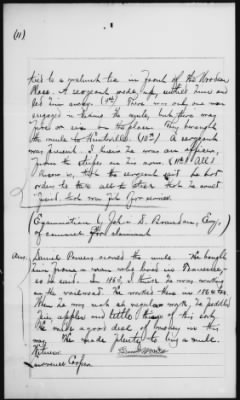 (11)
tied to a walnut tree in front of the Wooden
Place. A sergeant rode up, untied him and
led him away. (9th) There was only one man
engaged in taking the mule, but there was
five or six on the place. They brought
the mule to Huntsville. (10th) A sergeant
was present. I knew he was an officer,
from the stripes on his arm. (11th) All I
know is, that the sergeant said he had
orders to take all the stock that he could
find, told me
Examination by John D. Brandon, Esq.,
of counsel for claimant
Ans.
Daniel Powers owned the mule. He bought
him from a man who lived in Tennessee,
so he said. In 1863, I think he was working
on the railroad. He worked there in 1864 too.
When he was not at regular work, he peddled
in apples and little things of this sort.
He made a good deal of money in this
way. He made plenty to buy a mule.
Witness
Lawrence Cooper